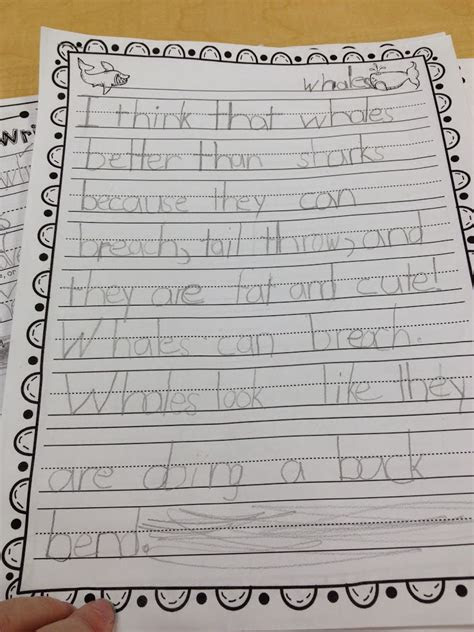 whales
I think that whales
better than sharks
because they can
breach, tail throw, and
they are fat and cute!
Whales can breach.
Whales look like they
are doing a back
bend.